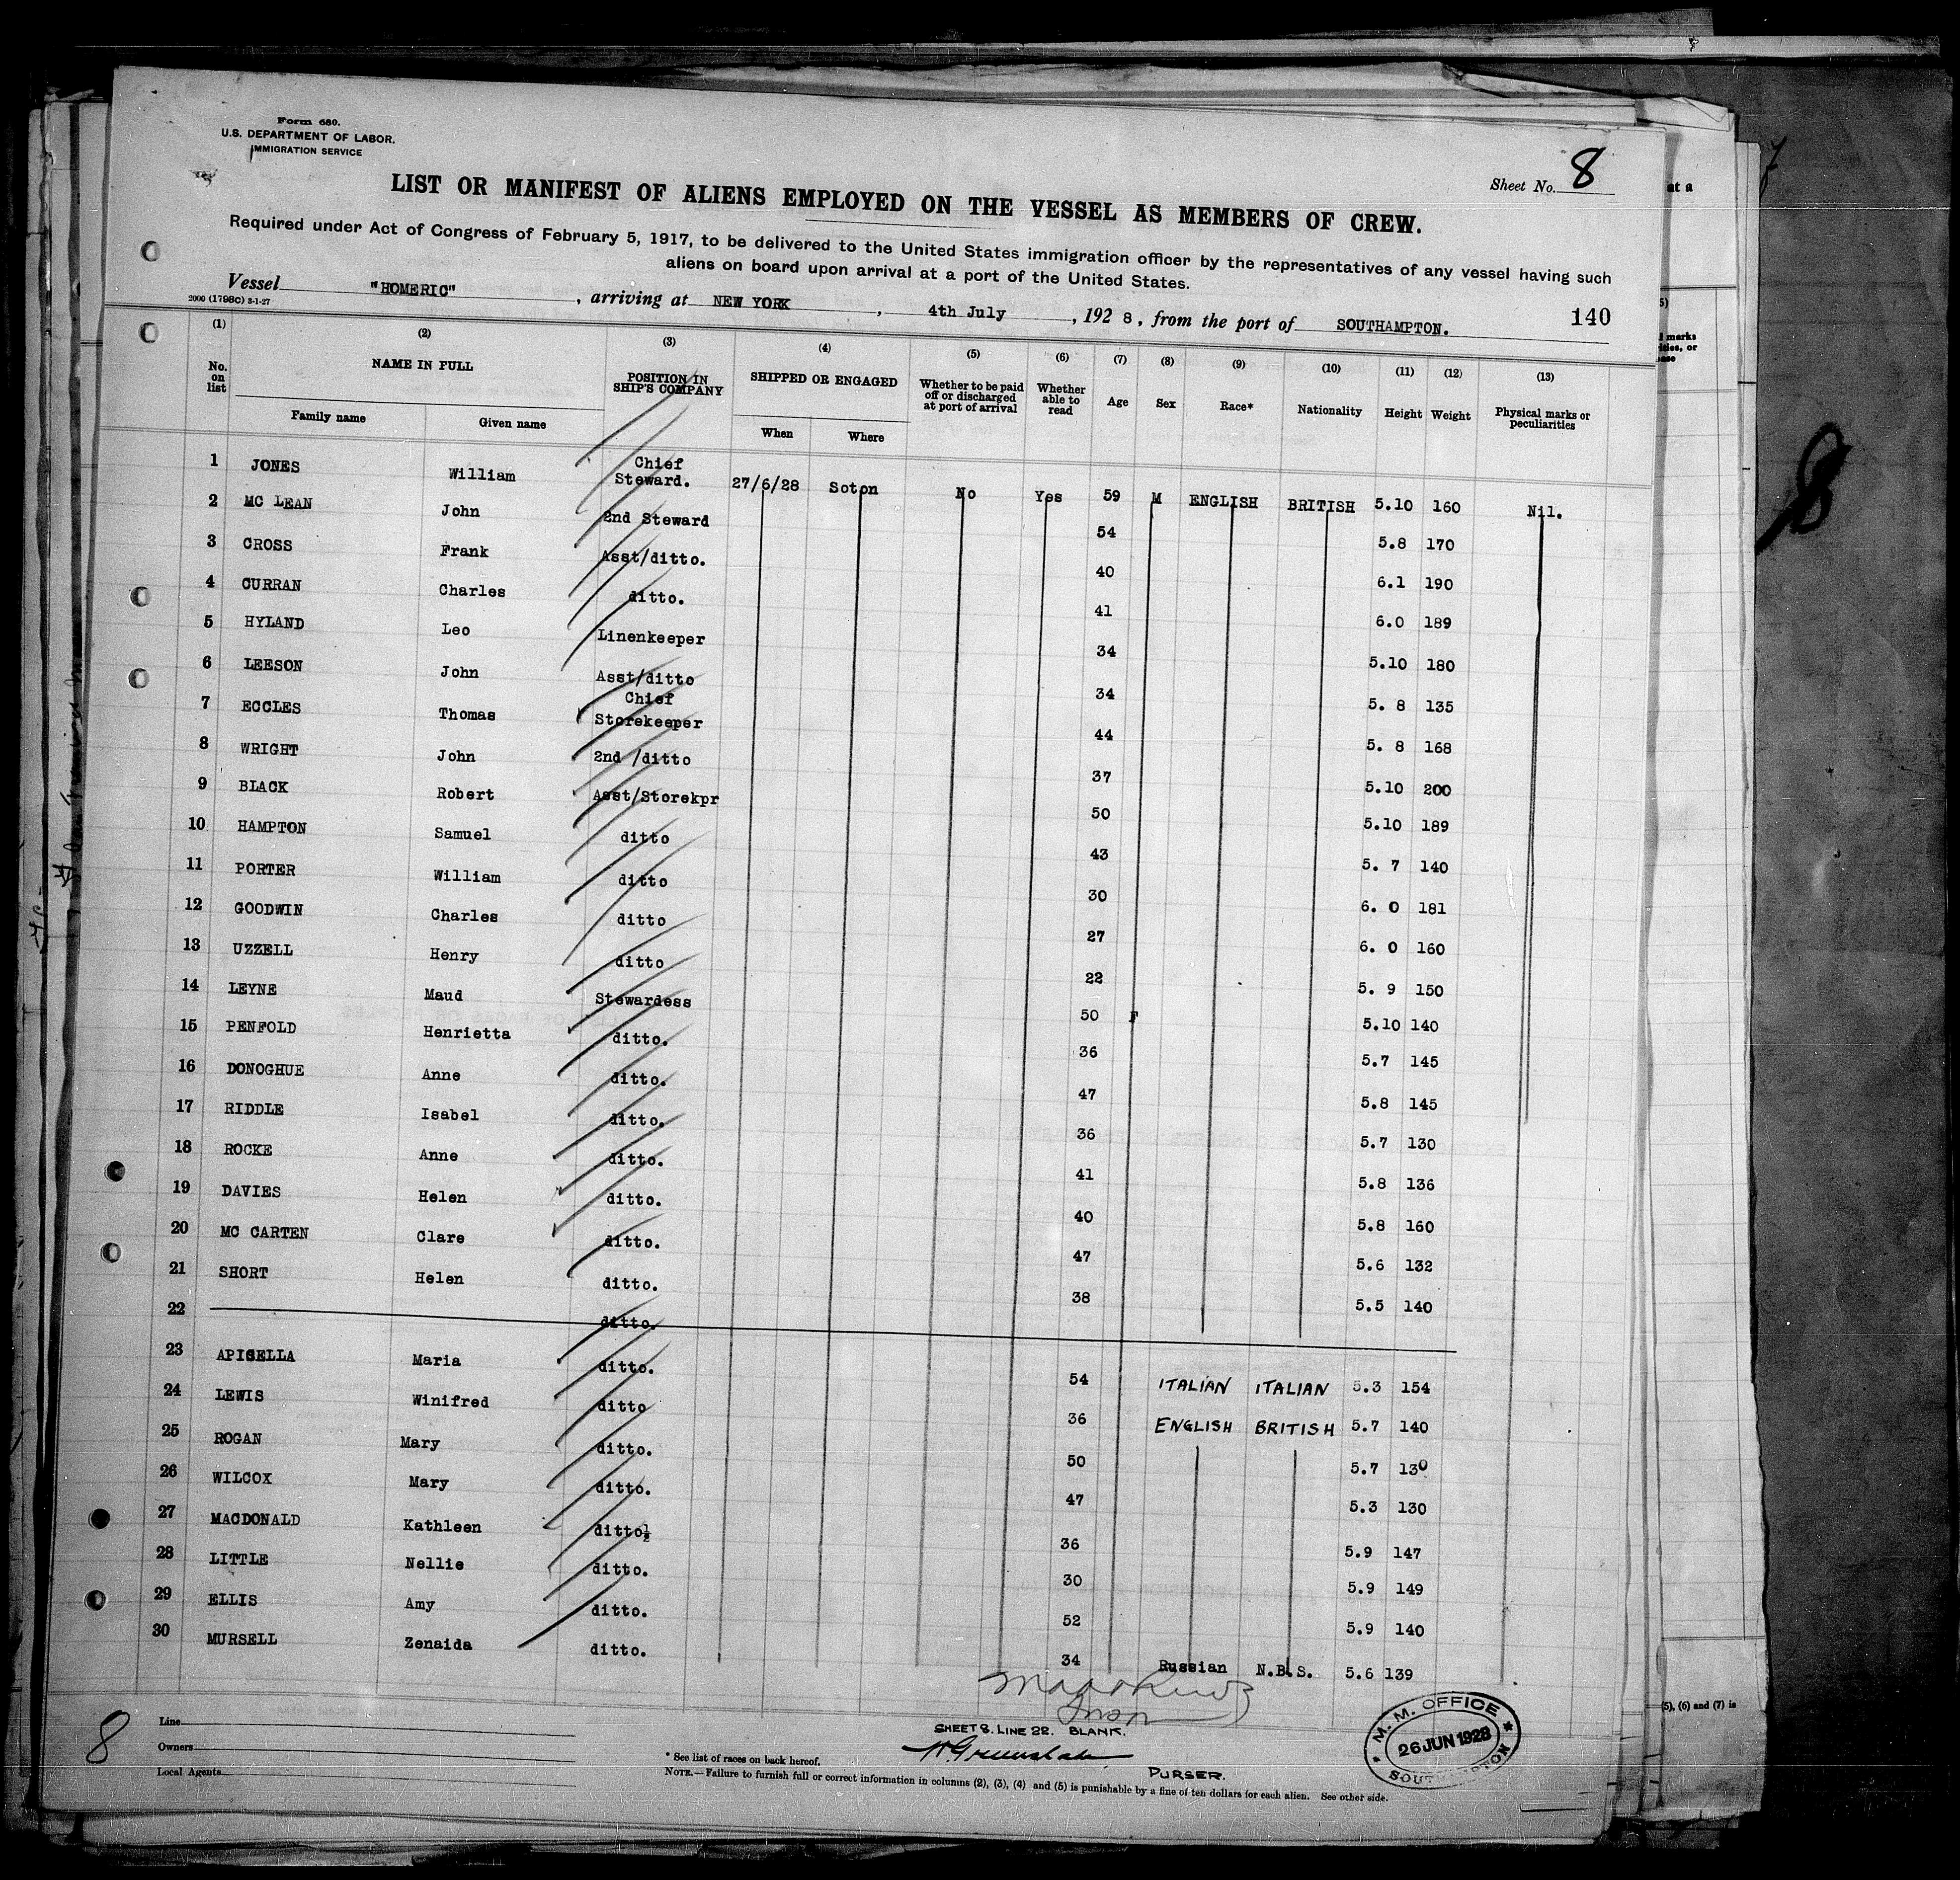 Form 680.
U.S. DEPARTMENT OF LABOR.
IMMIGRATION SERVICE
Sheet No. 8
LIST OR MANIFEST OF ALIENS EMPLOYED ON THE VESSEL AS MEMBERS OF CREW.
Required under Act of Congress of February 5, 1917, to be delivered to the United States immigration officer by the representatives of any vessel having such
aliens on board upon arrival at a port of the United States.
Vessel "HOMERIC", arriving at NEW YORK, 4th July, 1928, from the port of SOUTHAMPTON. 140
2000 (1798c) 3-1-27
(1) (2) (3) (4) (5) (6) (7) (8) (9) (10) (11) (12) (13)
No. on list NAME IN FULL POSITION IN SHIP'S COMPANY SHIPPED OR ENGAGED Whether to be paid off or discharged at port of arrival Whether able to read Age Sex Race* Nationality Height Weight Physical marks or peculiarities
Family name Given name When Where
1 JONES William Chief Steward. 27/6/28 Soton No Yes 59 M ENGLISH BRITISH 5.10 160 Nil.
2 MC LEAN John 2nd Steward 54 5.8 170
3 CROSS Frank Asst/ditto. 40 6.1 190
4 CURRAN Charles ditto. 41 6.0 189
5 HYLAND Leo Linenkeeper 34 5.10 180
6 LEESON John Asst/ditto 34 5. 8 135
7 ECCLES Thomas Chief Storekeeper 44 5. 8 168
8 WRIGHT John 2nd /ditto 37 5.10 200
9 BLACK Robert Asst/Storekpr 50 5.10 189
10 HAMPTON Samuel ditto 43 5. 7 140
11 PORTER William ditto 30 6. 0 181
12 GOODWIN Charles ditto 27 6. 0 160
13 UZZELL Henry ditto 22 5. 9 150
14 LEYNE Maud Stewardess 50 F 5.10 140
15 PENFOLD Henrietta ditto. 36 5.7 145
16 DONOGHUE Anne ditto. 47 5.8 145
17 RIDDLE Isabel ditto. 36 5.7 130
18 ROCKE Anne ditto. 41 5.8 136
19 DAVIES Helen ditto. 40 5.8 160
20 MC CARTEN Clare ditto. 47 5.6 132
21 SHORT Helen ditto. 38 5.5 140
22 ditto.
23 APISELLA Maria ditto. 54 ITALIAN ITALIAN 5.3 154
24 LEWIS Winifred ditto 36 ENGLISH BRITISH 5.7 140
25 ROGAN Mary ditto. 50 5.7 130
26 WILCOX Mary ditto. 47 5.3 130
27 MACDONALD Kathleen ditto 36 5.9 147
28 LITTLE Nellie ditto. 30 5.9 149
29 ELLIS Amy ditto. 52 5.9 140
30 MURSELL Zenaida ditto. 34 Russian N.B.S. 5.6 139
8
Line
Owners
Local Agents
SHEET 8. LINE 22. BLANK.
PURSER.
* See list of races on back hereof.
NOTE.—Failure to furnish full or correct information in columns (2), (3), (4) and (5) is punishable by a fine of ten dollars for each alien. See other side.
M. M. OFFICE
26 JUN 1928
SOUTHAMPTON
at a
marks
(5), (6) and (7) is
8